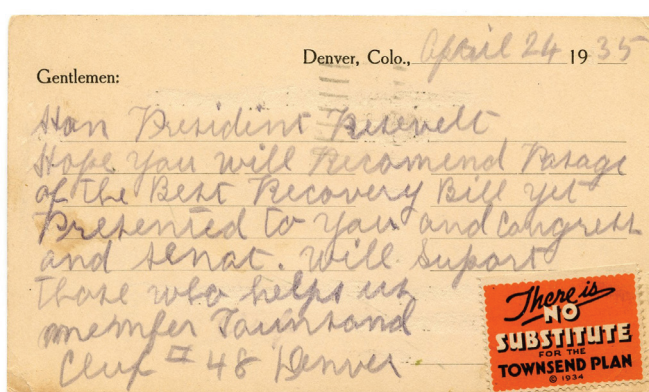 Denver, Colo., April 24 1935
Gentlemen:
Hon Presidint Rosevelt
Hope you will Recomend Pasage
of the Best Recovery Bill yet
Presented to you and congress
and senat. will suport
those who helps us
member Townsand
Cluf # 48 Denver
There is
NO
SUBSTITUTE
FOR THE
TOWNSEND PLAN
© 1934